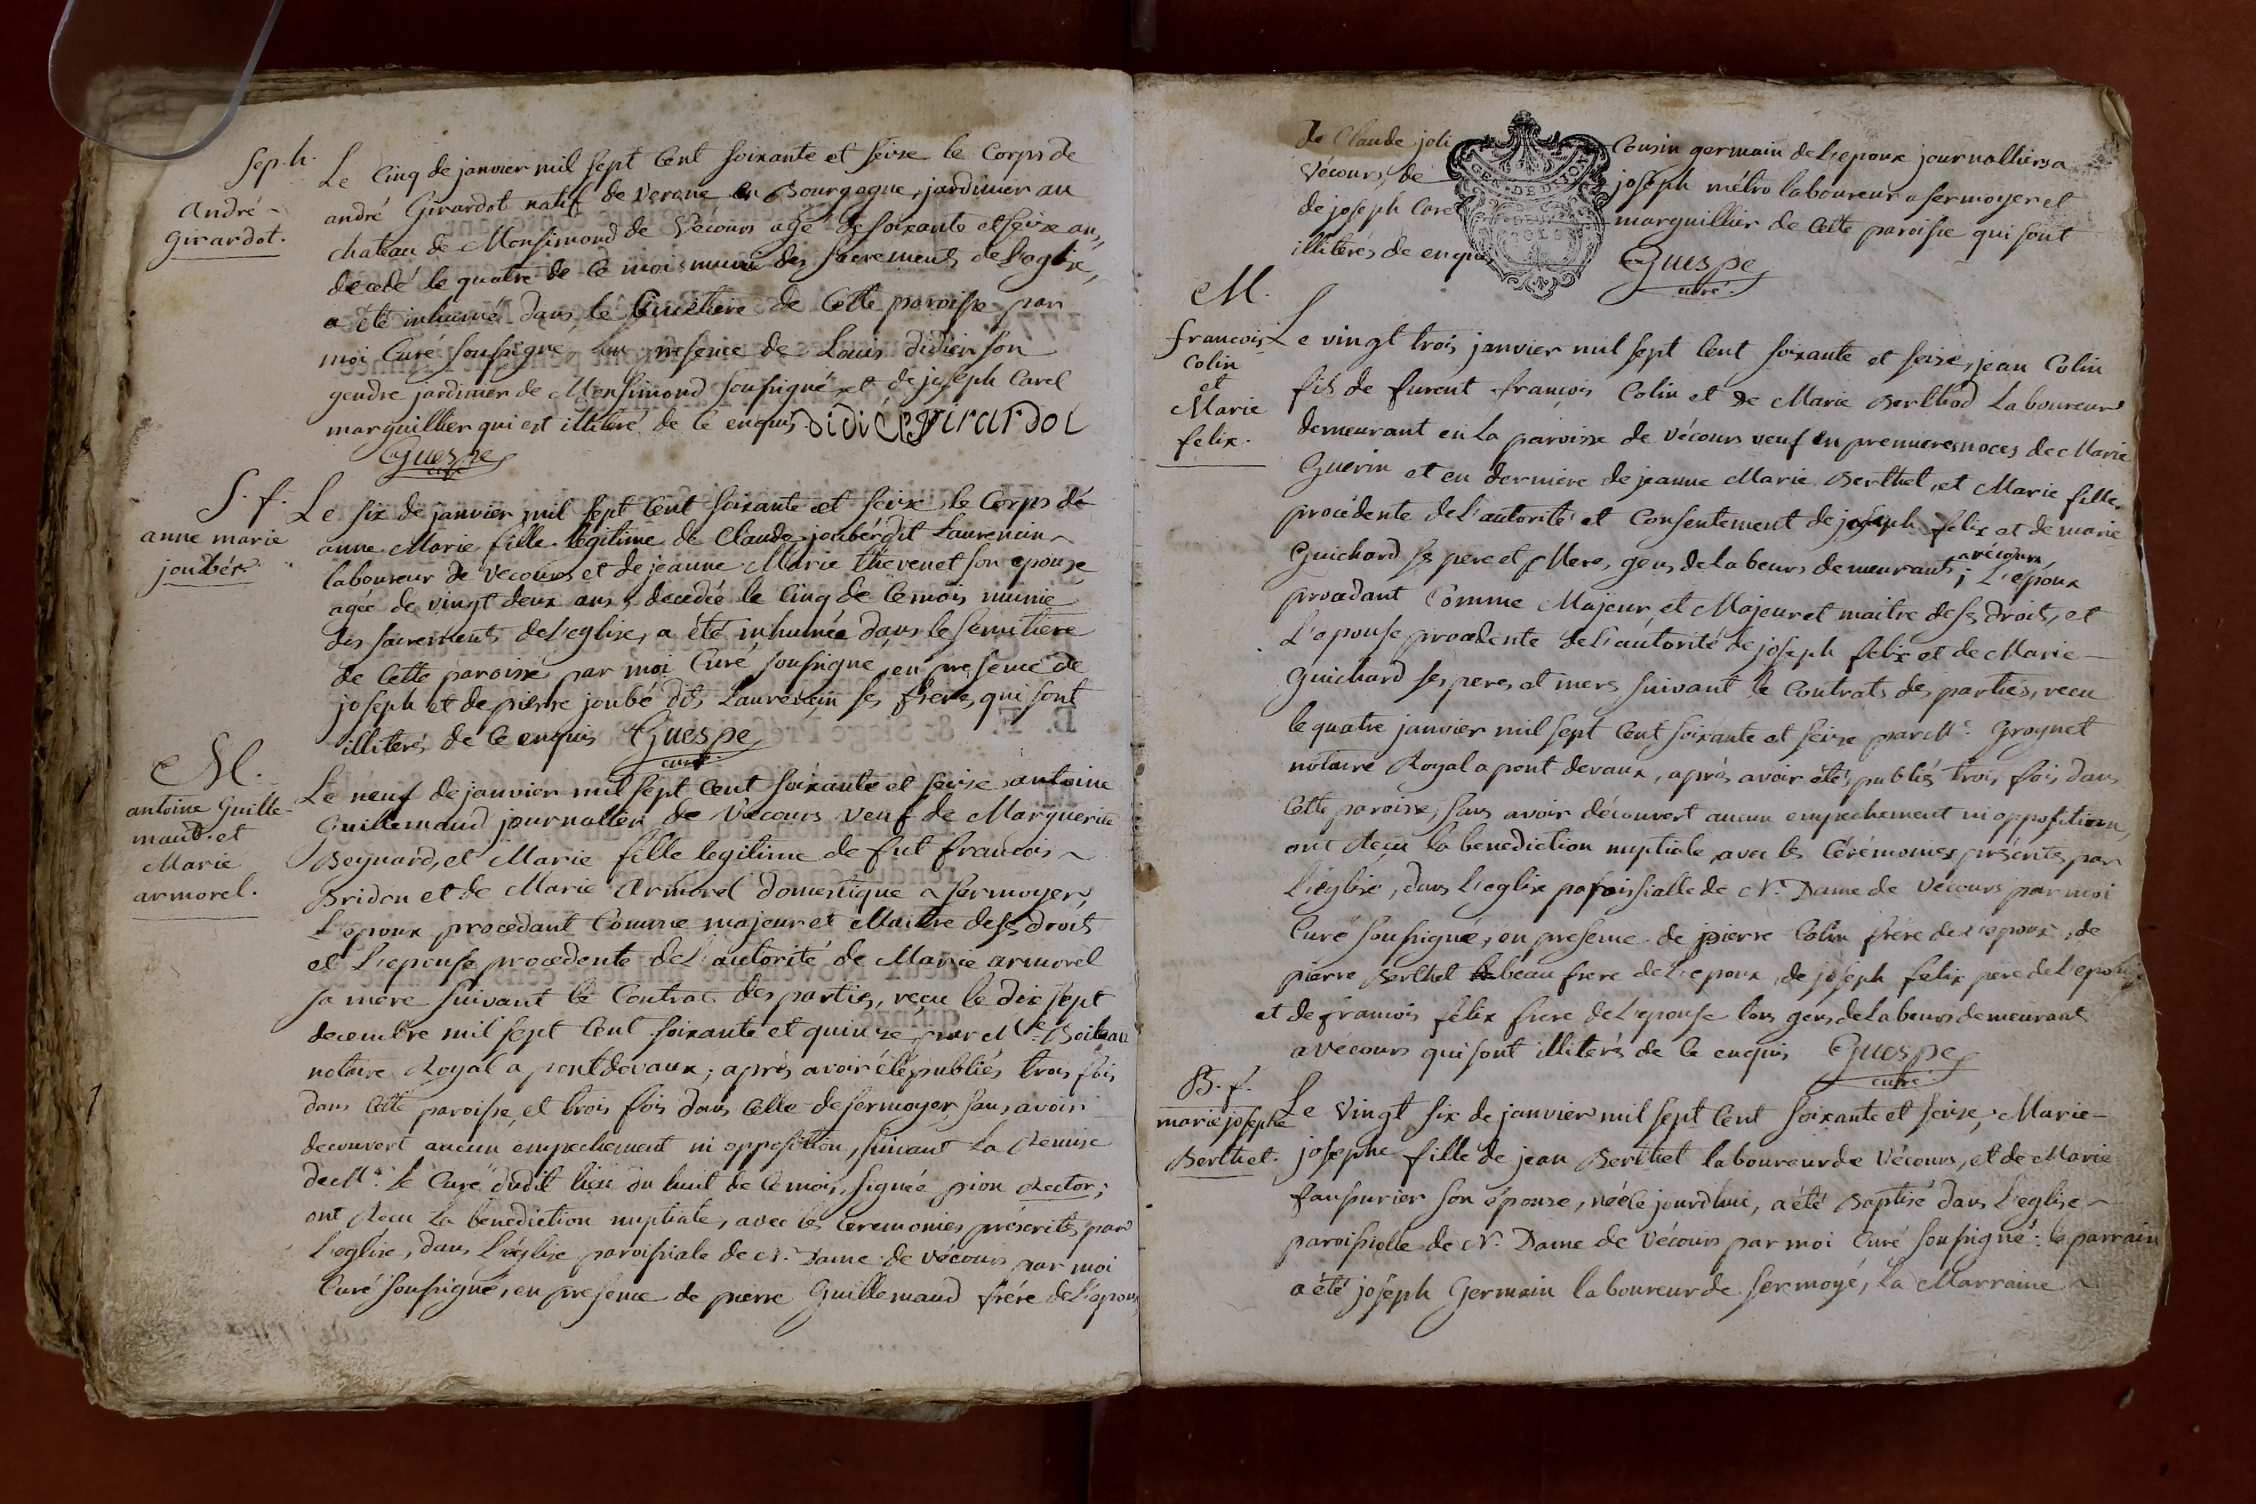 Sep. h.
André
Girardot.
Le Cinq de janvier mil sept Cent soixante et seize le Corps de
andré Girardot natif de Verone en Bourgogne, jardinier au
chateau de Monsimond de Vécours agé de soixante et seize ans
decedé le quatre de ce mois munie des sacrements de L'eglise,
a été inhumé dans le Cimetiere de Cette paroisse par
moi Curé soussigné en presence de Louis didier son
gendre jardinier de Monsimond soussigné et de joseph Carel
marguillier qui est illiteré de ce enquis. didié girardot
Guespe
curé
S. f.
anne marie
joubér
Le six de janvier mil sept Cent soixante et seize, le Corps de
anne Marie fille legitime de Claude joubér dit Laurencin
laboureur de vecours et de jeanne Marie thevenet son epouse
agée de vingt deux ans, decedée le Cinq de ce mois munie
des sacrements de L'eglise, a été inhumée dans le semitiere
de Cette paroisse par moi Curé soussigné, en presence de
joseph et de pierre joubé dit Laurencin ses freres, qui sont
illiterés de ce enquis Guespe
curé
M.
antoine Guille-
maud et
Marie
armorel.
Le neuf de janvier mil sept Cent soixante et seize antoine
Guillemaud journallier de Vécours veuf de Marguerite
Beynard, et Marie fille legitime de fut francois
Bridon et de Marie Armorel domestique a sermoyer,
L'epoux procedant Comme majeur et Maitre de ses droits
et L'epouse procedente de L'autorité de Marie armorel
sa mere suivant le Contrat des parties, reçu le dix sept
decembre mil sept Cent soixante et quinze par Me Boileau
notaire Royal a pontdevaux; après avoir été publiés trois fois
dans Cette paroisse, et trois fois dans Celle de sermoyer sans avoir
decouvert aucun empechement ni opposition, suivant la Remise
de Mr. le Curé dudit lieu du huit de ce mois, signée pion Rector;
ont Reçu la benediction nuptiale, avec les Ceremonies préscrites par
L'eglise, dans L'église paroissiale de N. Dame de vécours par moi
Curé soussigné, en presence de pierre Guillemaud frére de L'epoux
de Claude joli Cousin germain de L'epoux journalliers a
Vécours, de joseph métro laboureur a sermoyer et
de joseph Carel marguillier de Cette paroisse qui sont
illiterés de enquis Guespe
curé
M.
francois
Colin
et
Marie
felix.
Le vingt trois janvier mil sept Cent soixante et seize, jean Colin
fils de furent francois Colin et de Marie Berthod Laboureur
demeurant en La paroisse de vécours veuf en premieres noces de Marie
Guerin et en derniere de jeanne Marie Berthet, et Marie fille,
procédente de L'autorité et Consentement de joseph felix et de marie
Guichard ses pere et Mere, gens de labeurs demeurants a vécours; L'epoux
procedant Comme Majeur, et Majeur et maitre de ses droits, et
L'epouse procedente de L'autorité de joseph felix et de Marie
Guichard ses peres et mere suivant le Contrats des parties, recu
le quatre janvier mil sept Cent soixante et seize par Me. Grognet
notaire Royal a pont devaux, après avoir étés publiés trois fois dans
Cette paroisse, sans avoir découvert aucun empechement ni opposition,
ont Reçu la benediction nuptiale avec les Cérémonies préscrites par
L'église, dans L'eglise paroissialle de N. Dame de Vécours par moi
Curé soussigné, en presence de pierre Colin frére de L'epoux, de
pierre Berthet beau frere de L'epoux, de joseph felix pere de L'epouse
et de francois félix frere de L'epouse tous gens de Labeurs demeurant
a vécours qui sont illiterés de ce enquis Guespe
curé
B. f.
marie josephe
Berthet.
Le Vingt six de janvier mil sept Cent soixante et seize, Marie-
josephe fille de jean Berthet laboureur de Vécours, et de Marie
faussurier son épouse, née ce jourd'hui, a été Baptisé dans L'eglise
paroissialle de N. Dame de Vécours par moi Curé soussigné: le parrain
a été joséph Germain laboureur de sermoyé, la Marraine